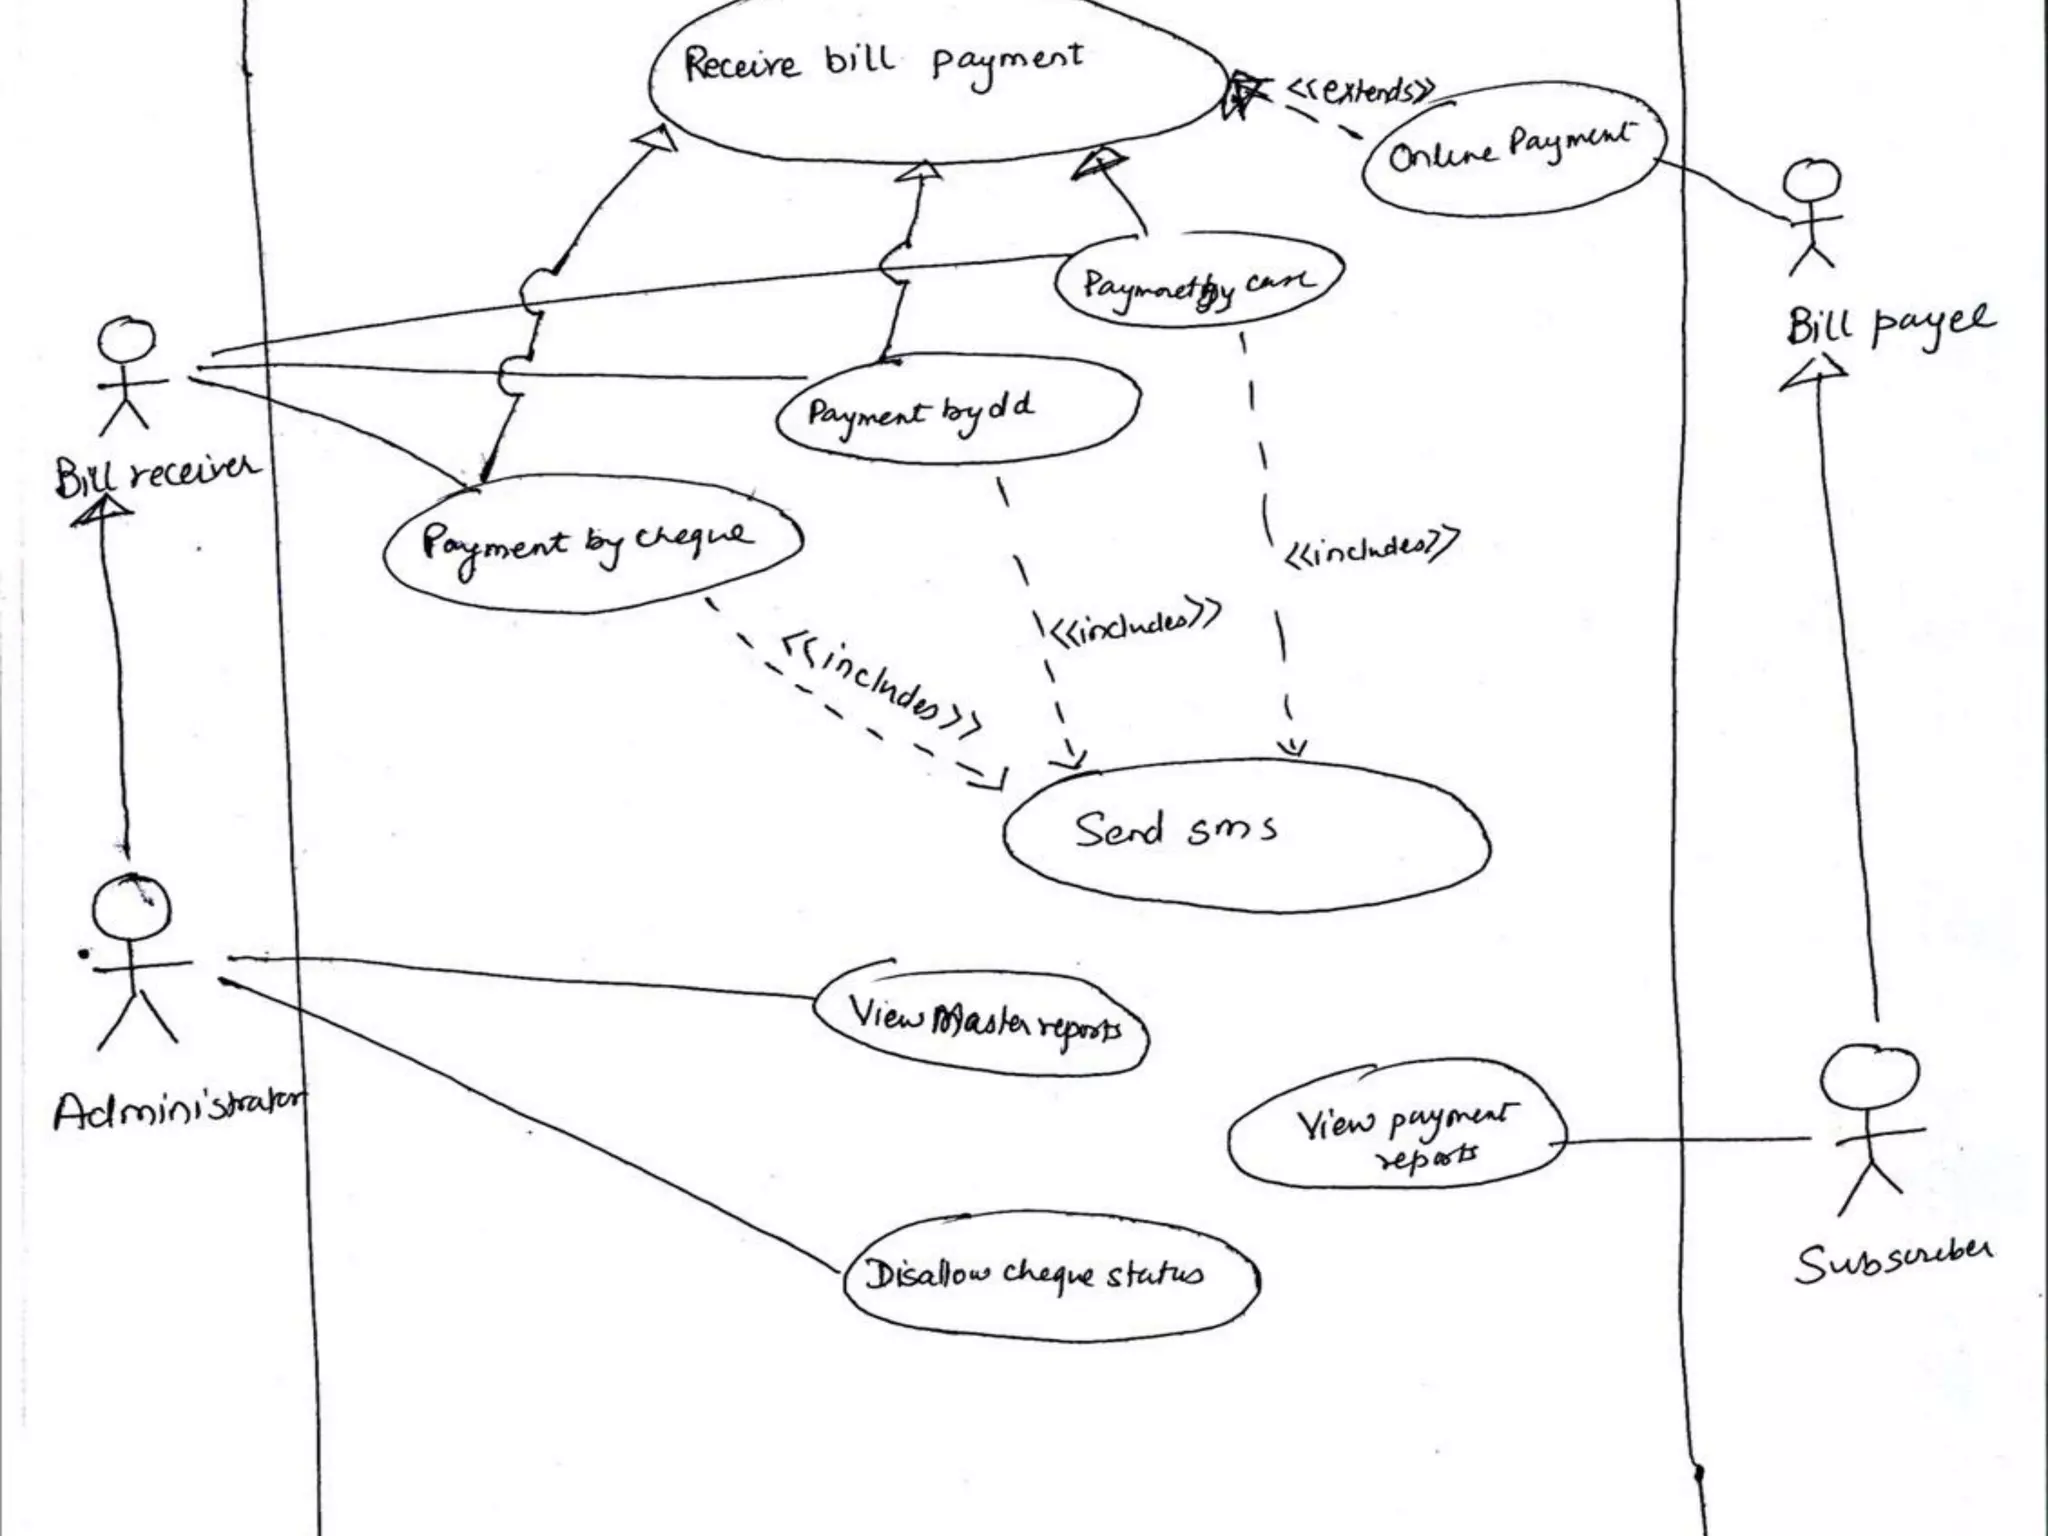 Receive bill payment
<<extends>>
Online Payment
Payment by
Bill payee
Payment by dd
Bill receiver
Payment by cheque
<<includes>>
<<includes>>
<<includes>>
Send sms
View Master reports
Administrator
View payment
reports
Disallow cheque status
Subscriber